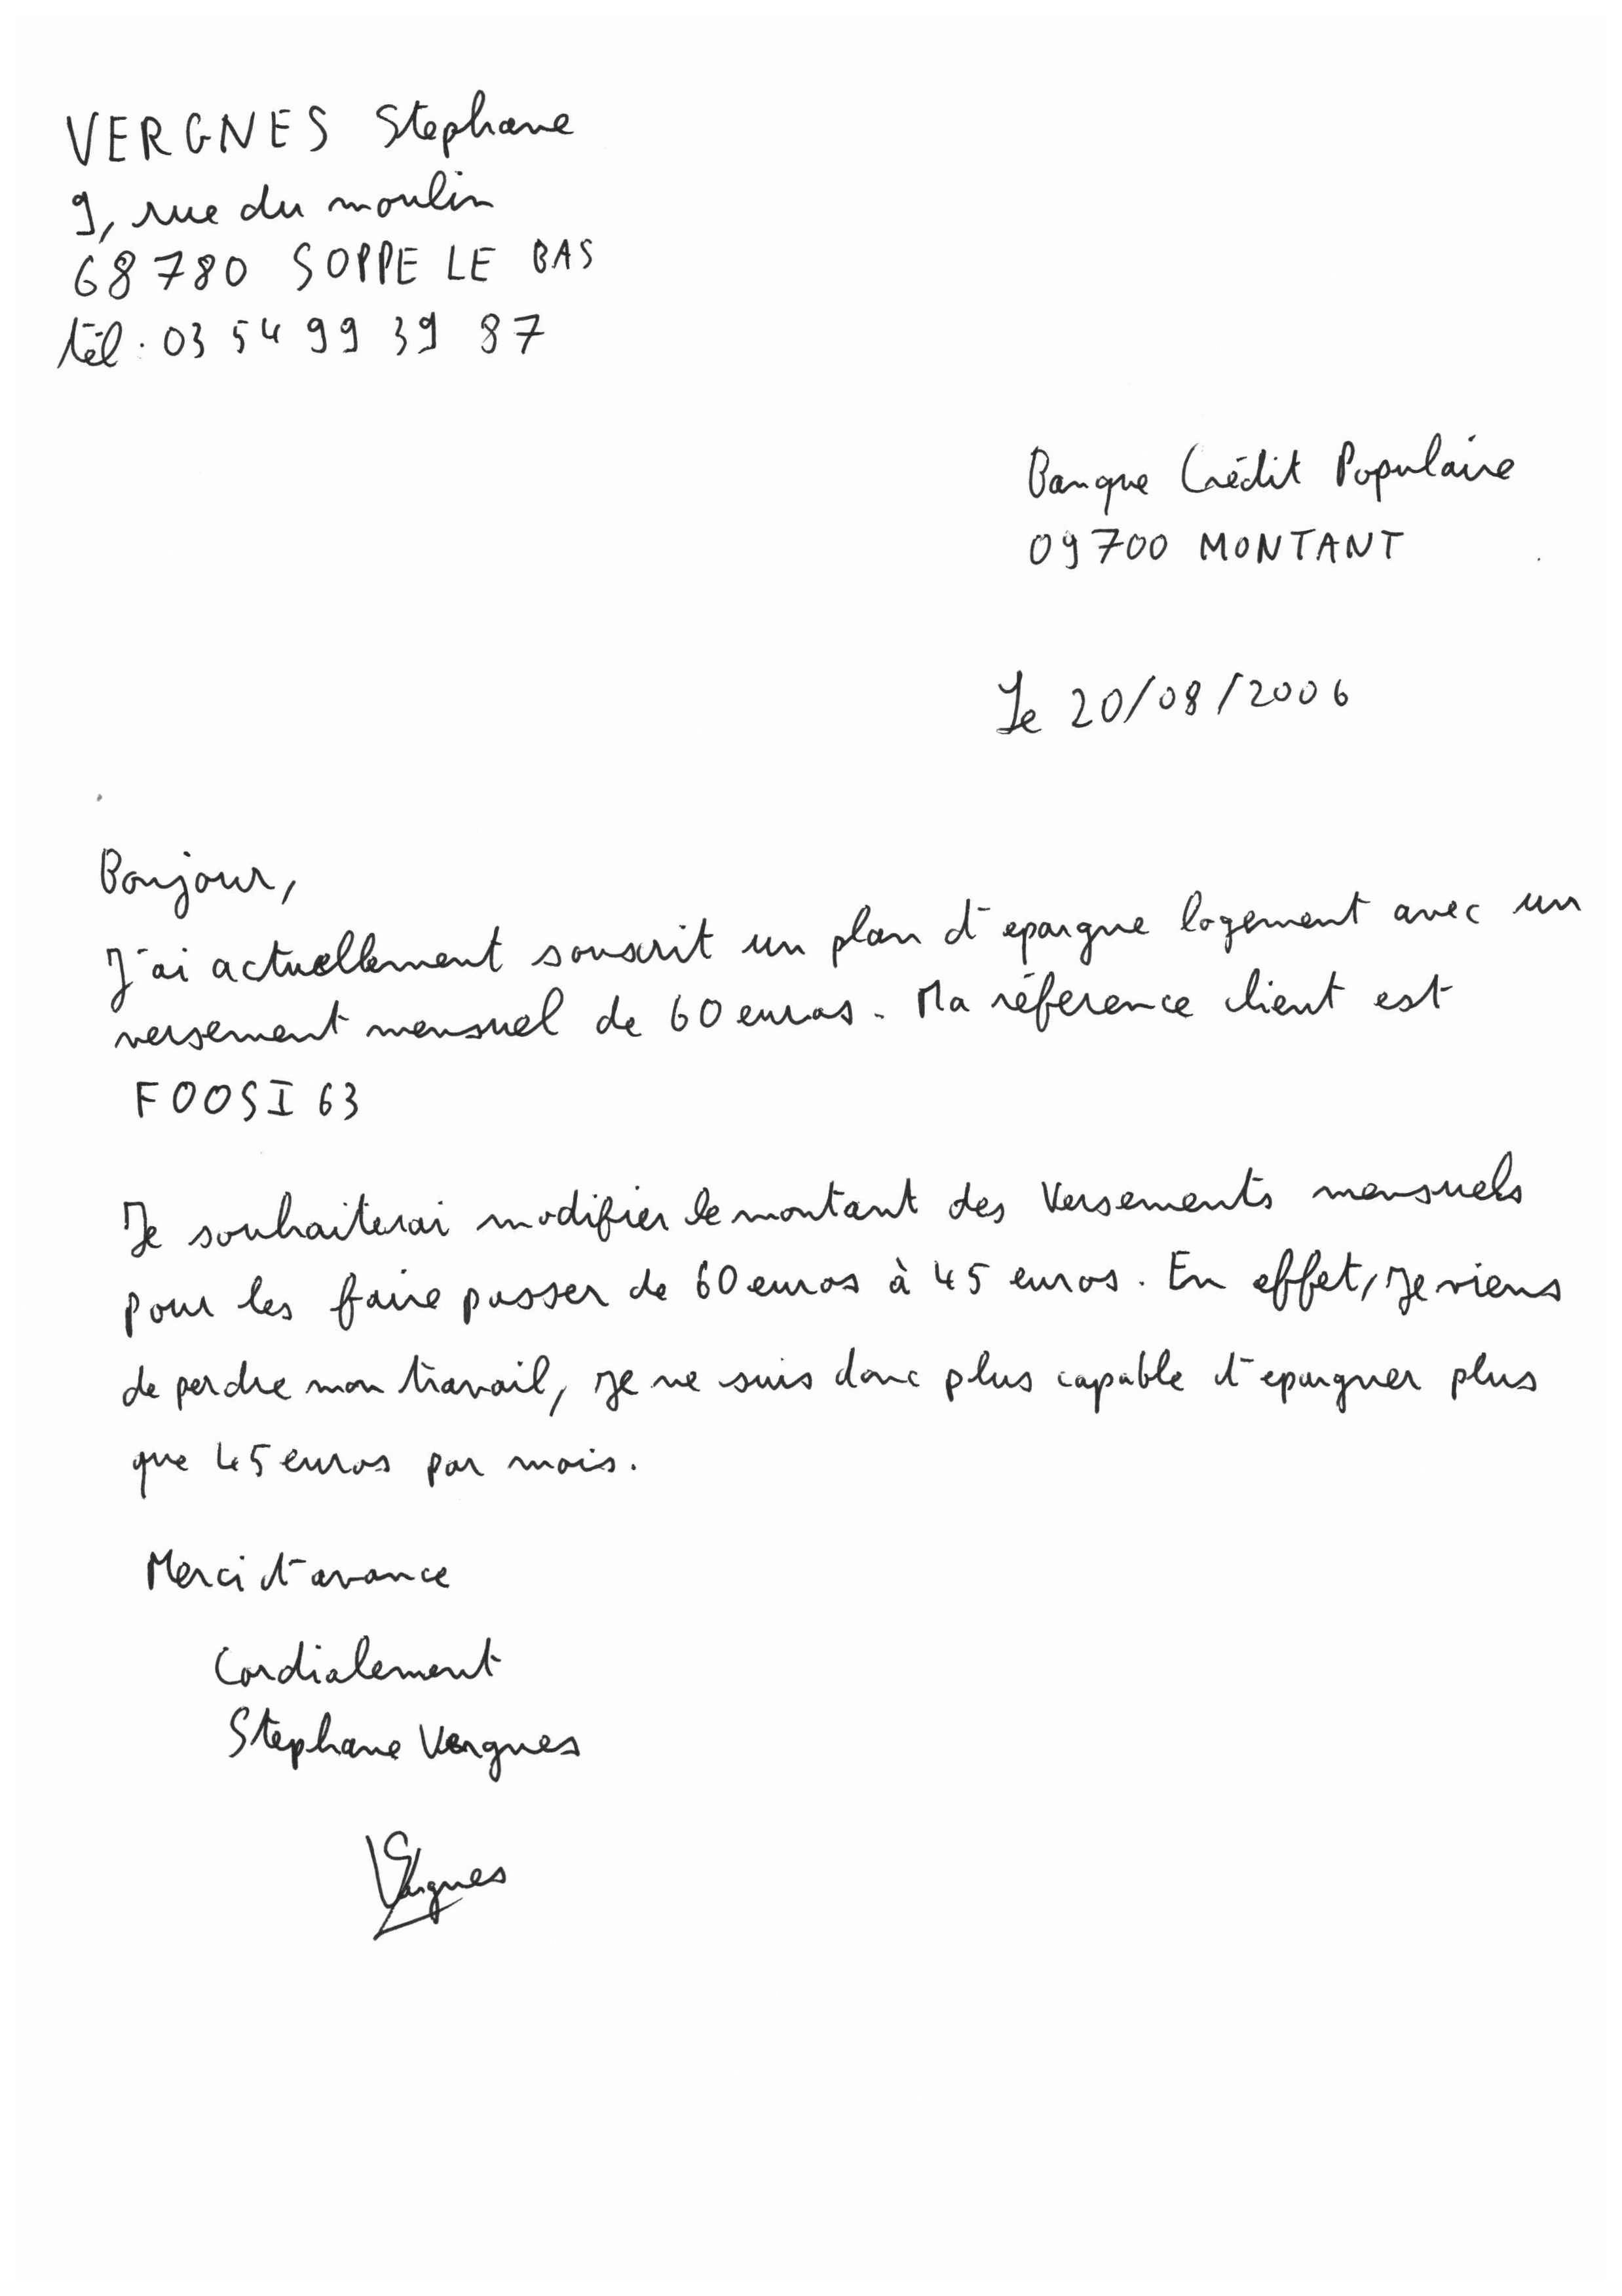 VERGNES Stephane
9, rue du moulin
68780 SOPPE LE BAS
tél : 03 54 99 39 87
Banque Crédit Populaire
09700 MONTANT
Le 20/08/2006
Bonjour,
J'ai actuellement souscrit un plan d'epargne logement avec un
versement mensuel de 60 euros. Ma réference client est
FOOSI63
Je souhaiterai modifier le montant des versements mensuels
pour les faire passer de 60 euros à 45 euros. En effet, je viens
de perdre mon travail, je ne suis donc plus capable d'epargner plus
que 45 euros par mois.
Merci d'avance
Cordialement
Stephane Vergnes
Vergnes